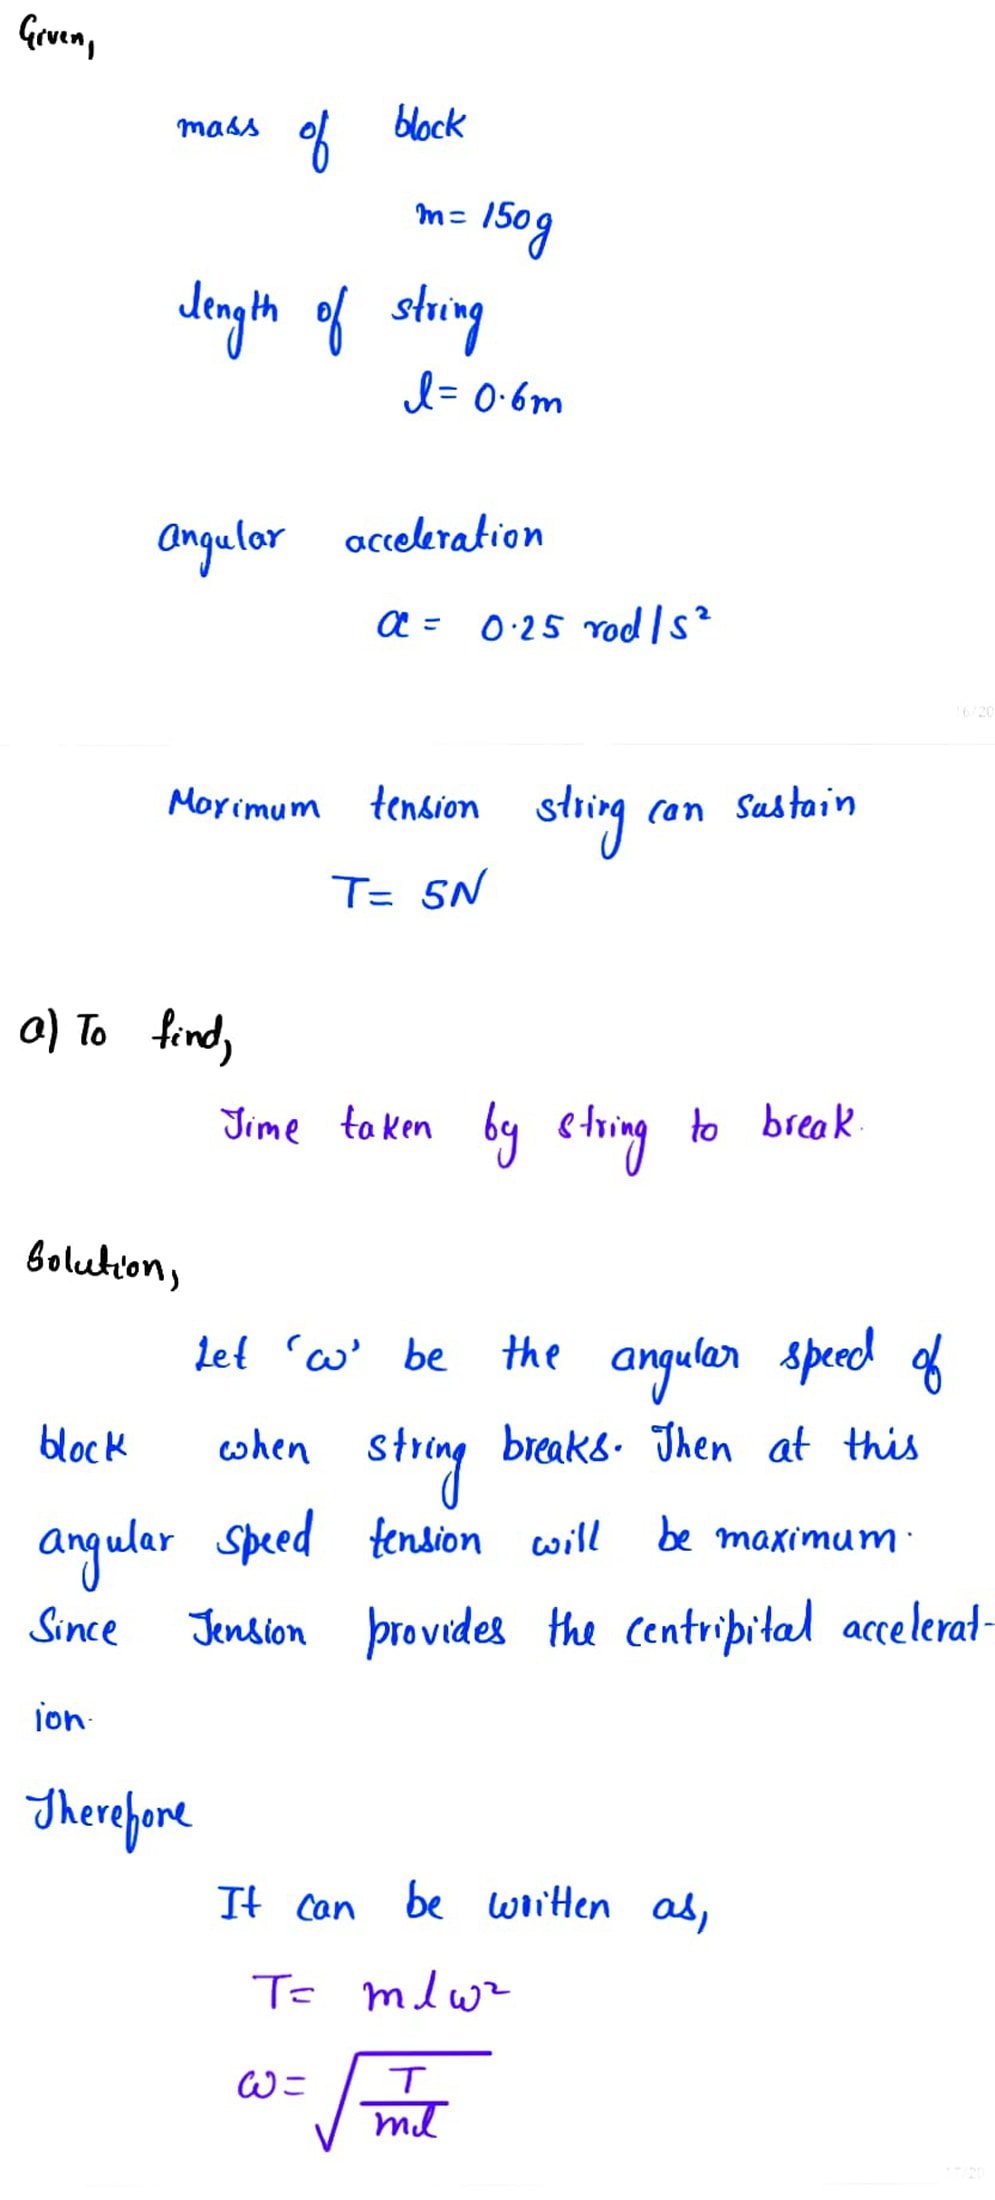 Given,
mass of block
m = 150g
length of string
l = 0.6m
angular acceleration
α = 0.25 rad/s²
16/20
Maximum tension string can sustain
T = 5N
a) To find,
Time taken by string to break.
Solution,
Let 'ω' be the angular speed of
block when string breaks. Then at this
angular speed tension will be maximum.
Since Tension provides the centripital accelerat-
ion.
Therefore
It can be written as,
T = mlω²
ω = √(T/ml)
17/20